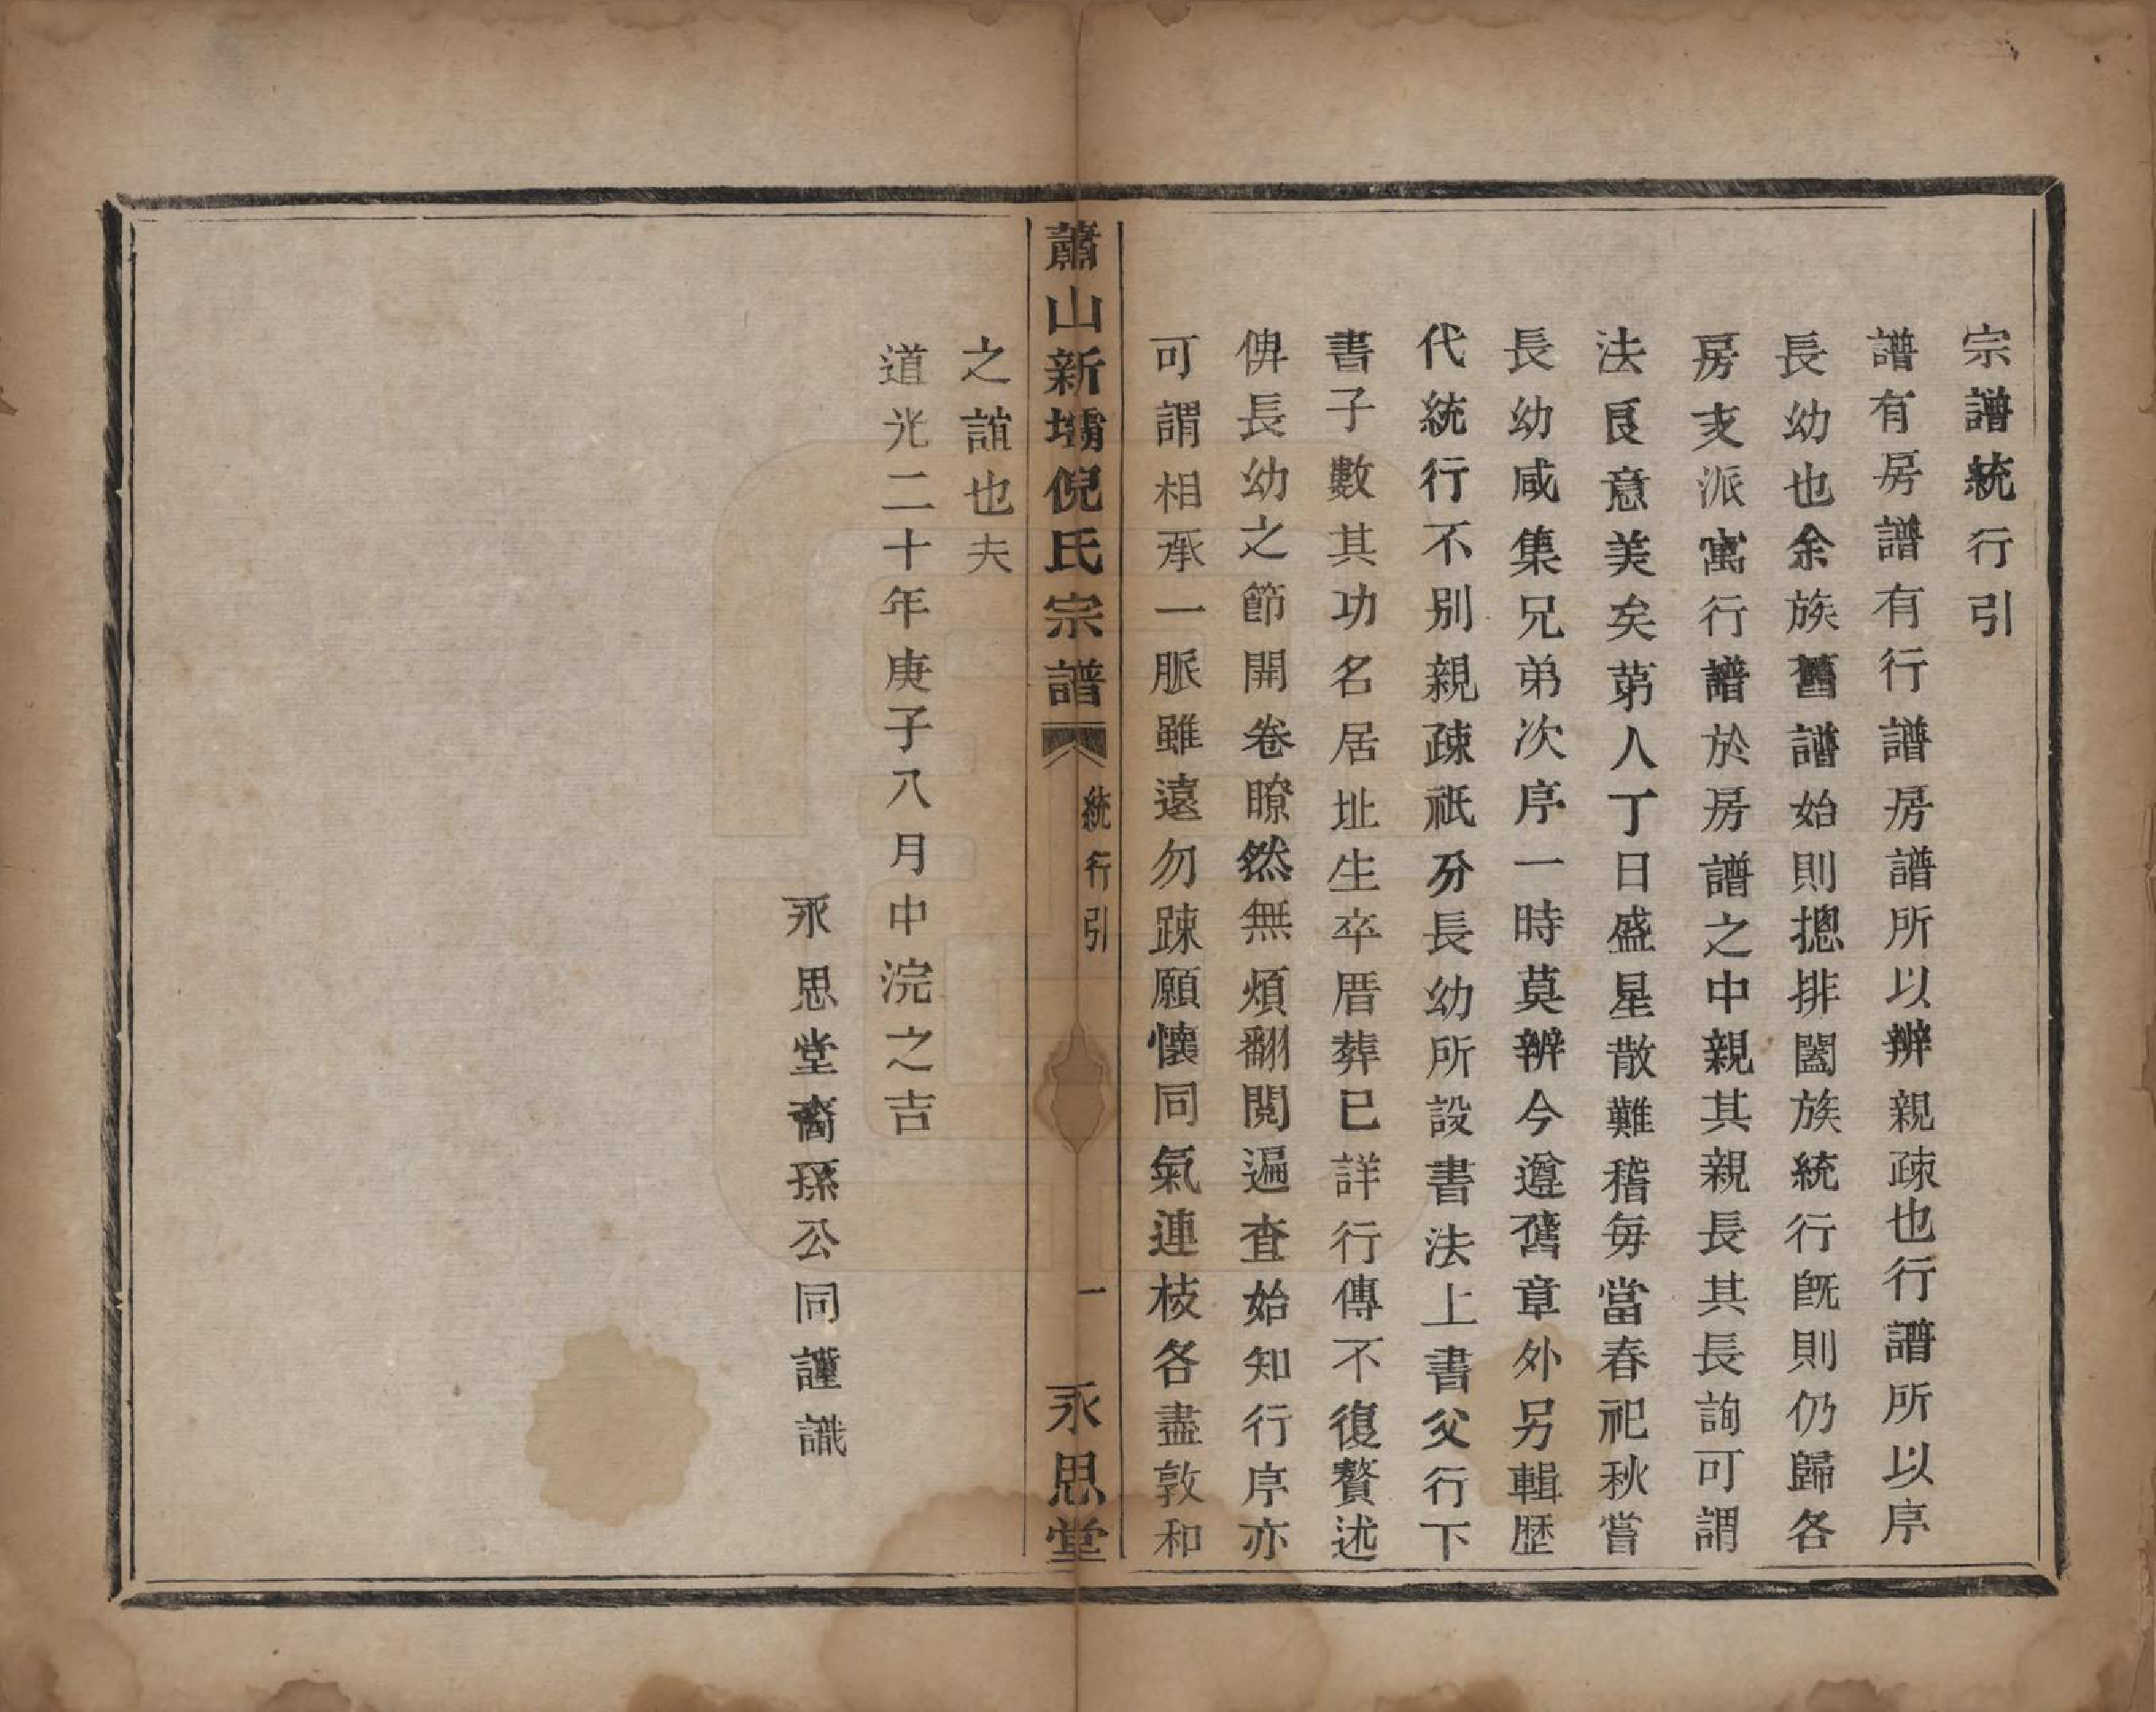 宗譜統行引
譜有房譜有行譜房譜所以辨親疎也行譜所以序
長幼也余族舊譜始則摠排闔族統行旣則仍歸各
房支派寓行譜於房譜之中親其親長其長詢可謂
法良意美矣苐人丁日盛星散難稽每當春祀秋嘗
長幼咸集兄弟次序一時莫辨今遵舊章外另輯歷
代統行不別親疎祇分長幼所設書法上書父行下
書子數其功名居址生卒厝葬已詳行傳不復贅述
俾長幼之節開卷瞭然無煩翻閱遍查始知行序亦
可謂相承一脈雖遠勿踈願懷同氣連枝各盡敦和
蕭山新壩倪氏宗譜 統行引 一 永思堂
之誼也夫
道光二十年庚子八月中浣之吉
永思堂裔孫公同謹識